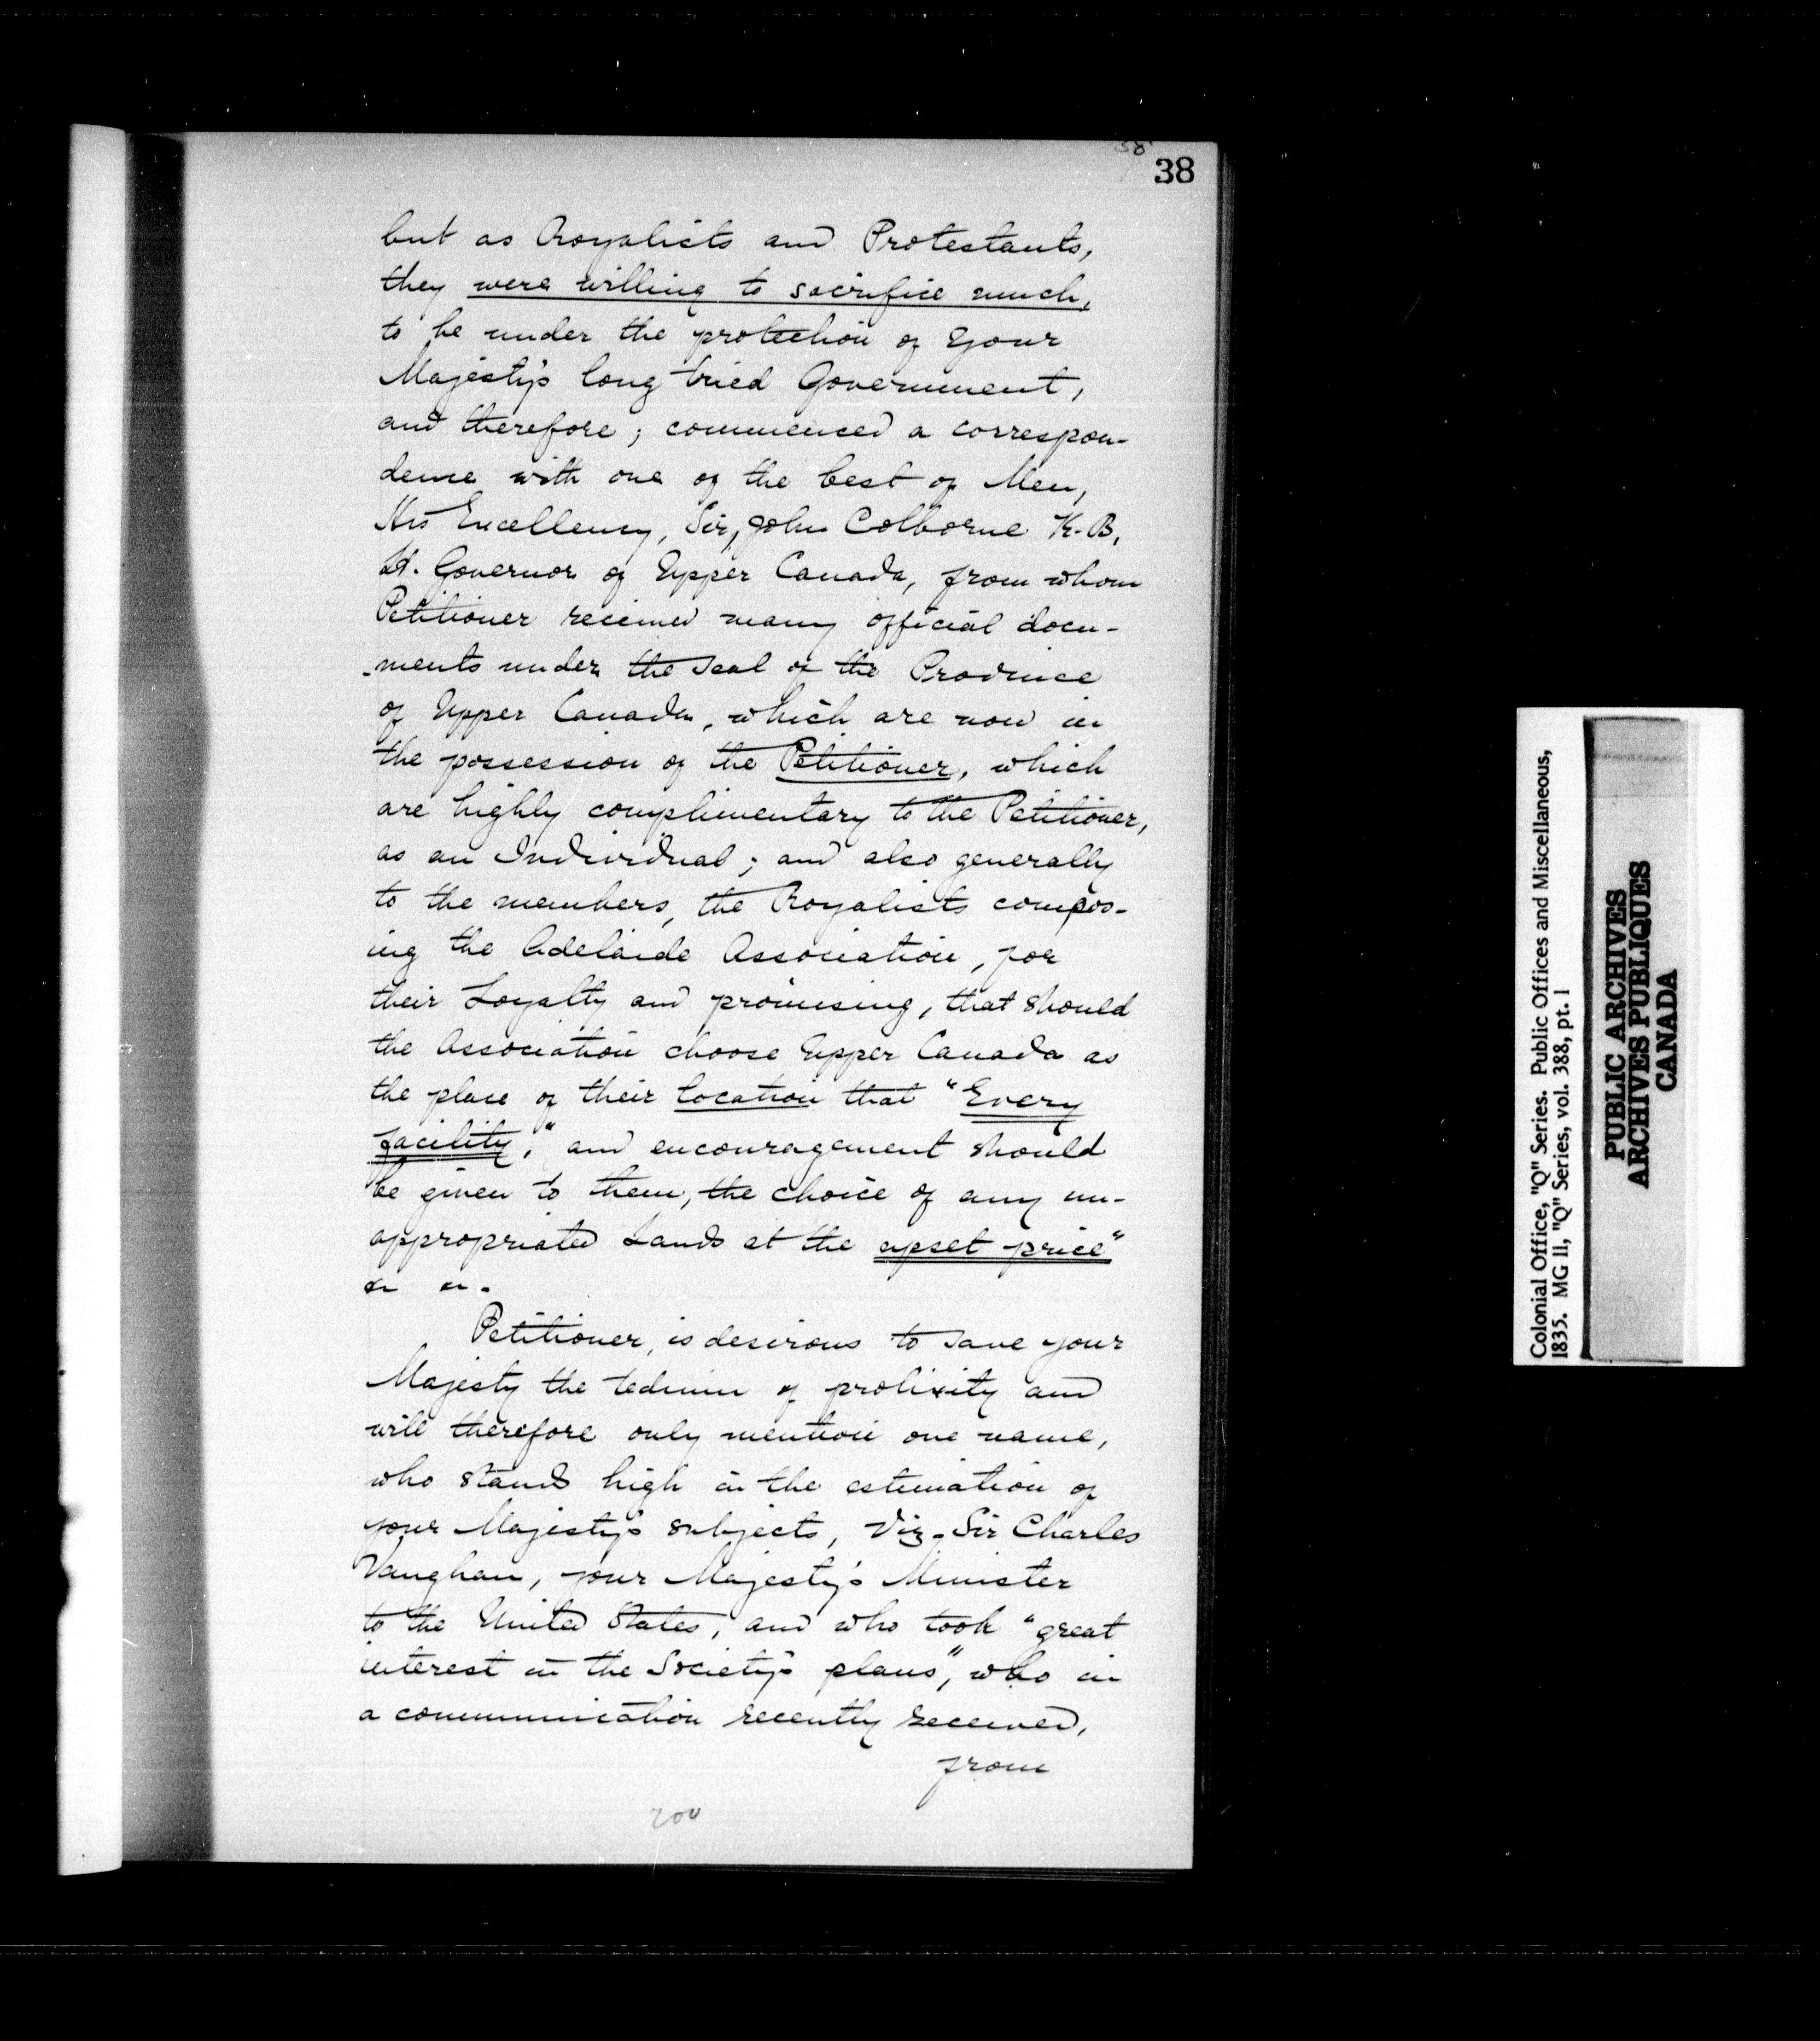 38
38
but as Royalists and Protestants,
they were willing to sacrifice much,
to be under the protection of Your
Majesty's long tried Government,
and therefore; commenced a correspon-
dence with one of the best of Men,
His Excellency, Sir, John Colborne K.B,
Lt. Governor of Upper Canada, from whom
Petitioner received many official docu-
-ments under the seal of the Province
of Upper Canada, which are now in
the possession of the Petitioner, which
are highly complimentary to the Petitioner,
as an Individual; and also generally
to the members, the Royalists compos-
ing the Adelaide Association, for
their Loyalty and promising, that should
the Association choose Upper Canada as
the place of their location that "Every
facility," and encouragement should
be given to them, the choice of any un-
appropriated Lands at the upset price"
&c &c.
Petitioner, is desirous to save your
Majesty the tedium of prolixity and
will therefore only mention one name,
who stands high in the estimation of
your Majesty's subjects, Viz. Sir Charles
Vaughan, your Majesty's Minister
to the United States, and who took "great
interest in the Society's plans", who in
a communication recently received,
from
200
Colonial Office, "Q" Series. Public Offices and Miscellaneous,
1835. MG 11, "Q" Series, vol. 388, pt. 1
PUBLIC ARCHIVES
ARCHIVES PUBLIQUES
CANADA